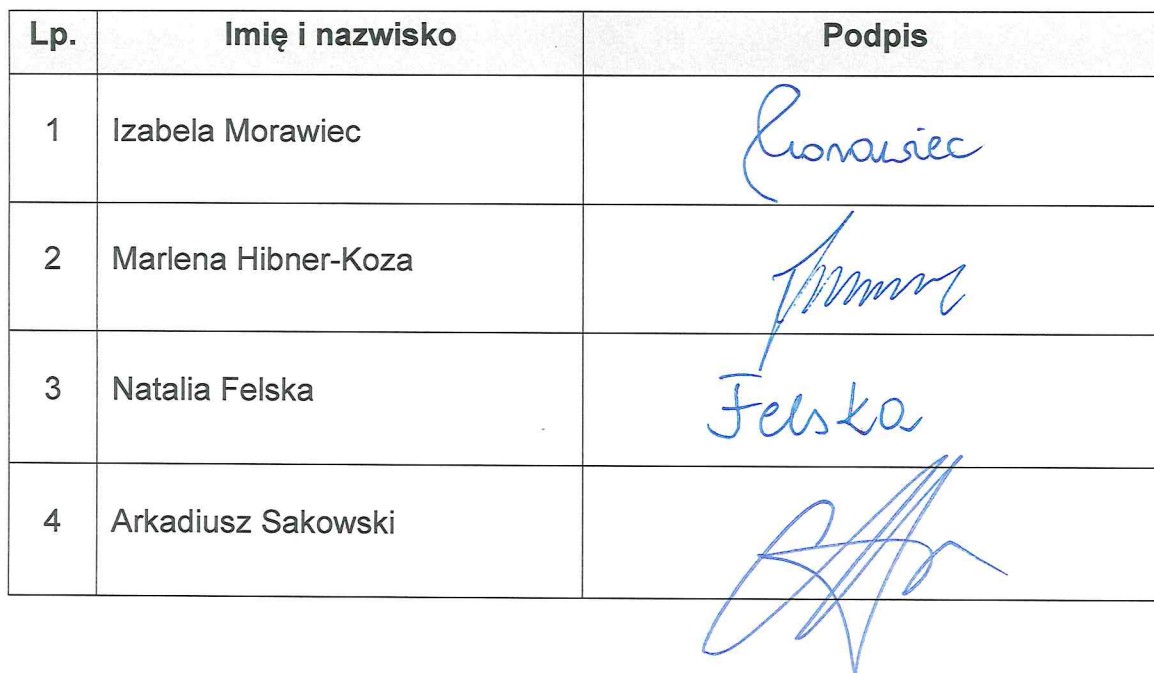 Lp. Imię i nazwisko Podpis
1 Izabela Morawiec Morawiec
2 Marlena Hibner-Koza
3 Natalia Felska Felska
4 Arkadiusz Sakowski